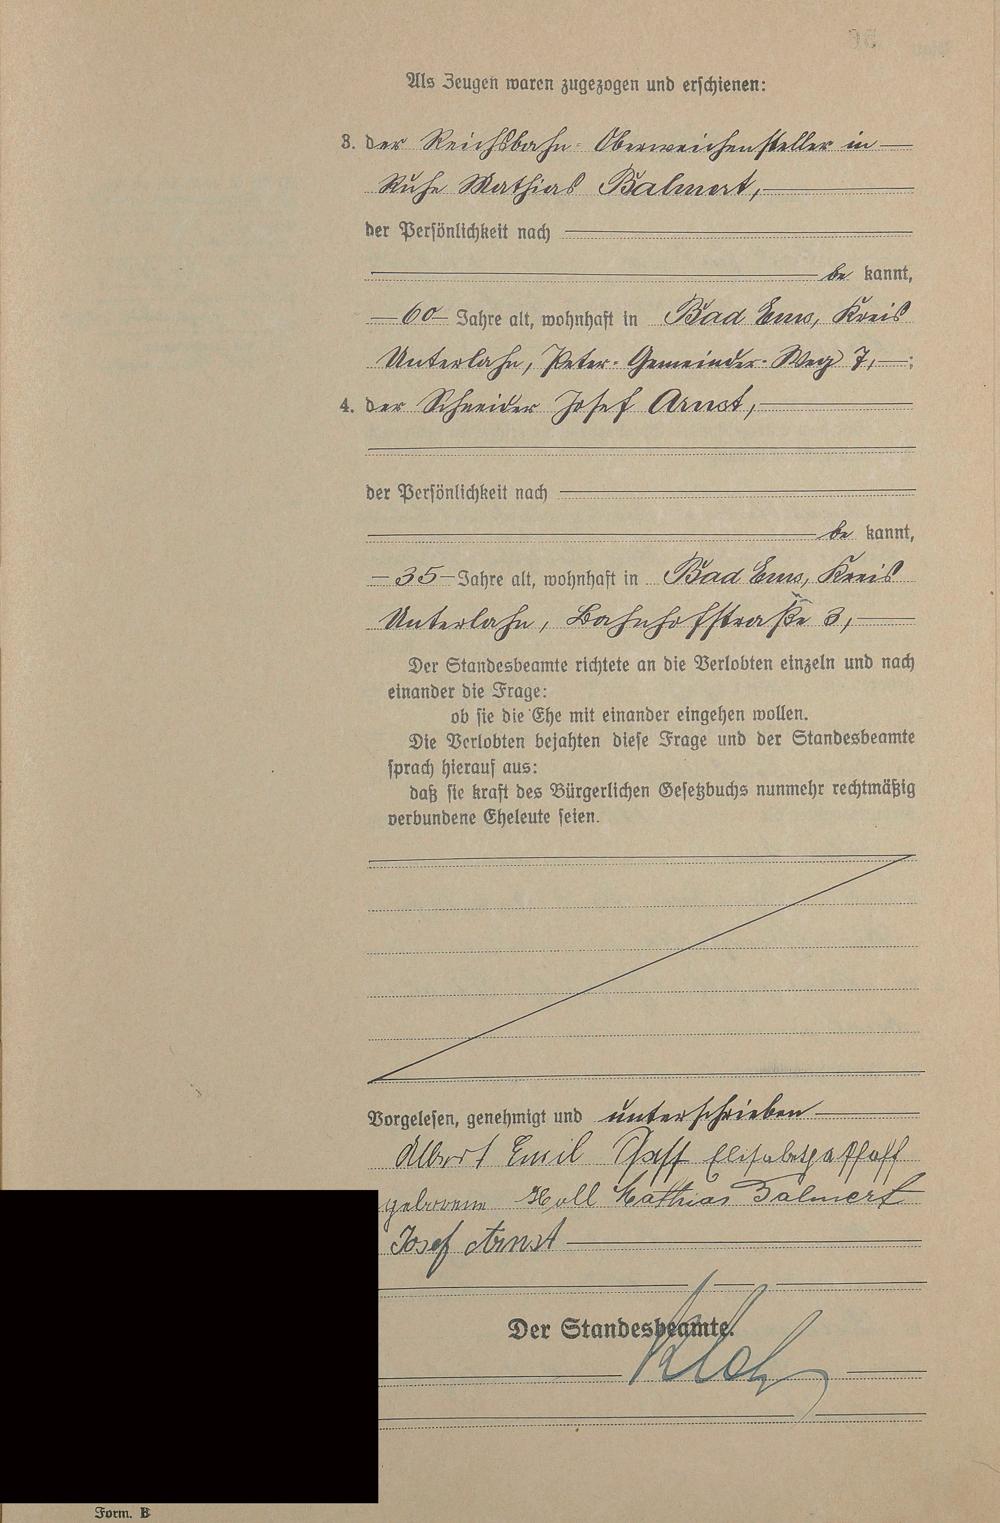 Als Zeugen waren zugezogen und erschienen:
3. der Reichsbahn-Oberweichensteller in
Ruhe Mathias Balmert,
der Persönlichkeit nach
be kannt,
60 Jahre alt, wohnhaft in Bad Ems, Kreis
Unterlahn, Peter-Gemeinder-Weg 7, ;
4. der Schneider Josef Arnst,
der Persönlichkeit nach
be kannt,
35 Jahre alt, wohnhaft in Bad Ems, Kreis
Unterlahn, Bahnhofstraße 3,
Der Standesbeamte richtete an die Verlobten einzeln und nach
einander die Frage:
ob sie die Ehe mit einander eingehen wollen.
Die Verlobten bejahten diese Frage und der Standesbeamte
sprach hierauf aus:
daß sie kraft des Bürgerlichen Gesetzbuchs nunmehr rechtmäßig
verbundene Eheleute seien.
Vorgelesen, genehmigt und unterschrieben
Albert Emil
geborene Holl Mathias Balmert
Josef Arnst
Der Standesbeamte.
Form. B